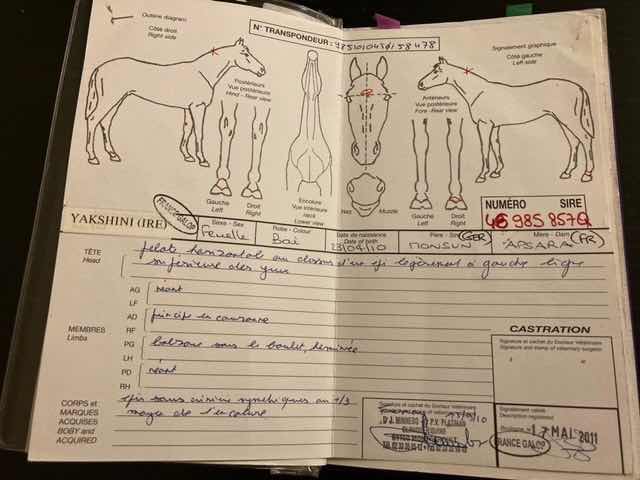 Outline diagram
Côté droit
Right side
N° TRANSPONDEUR :
Signalement graphique
Côté gauche
Left side
Postérieurs
Vue postérieure
Hind - Rear view
Antérieurs
Vue postérieure
Fore - Rear view
Gauche
Left
Droit
Right
Encolure
Vue inférieure
neck
Lower view
Naz
Muzzle
Gauche
Left
Droit
Right
NUMÉRO SIRE
985 857Q
FRANCE GALOP
YAKSHINI (IRE)
Sexe - Sex
Femelle
Robe - Colour
Bai
Date de naissance
Date of birth
23/04/10
Père - Sire
MONSUN (GER)
Mère - Dam
APSARA (FR)
TÊTE
Head
pelote horizontale au dessus d'un épi légèrement à gauche ligne
supérieure des yeux
MEMBRES
Limbs
AG
néant
LF
AD
principe en couronne
RF
PG
balzane sous le boulet, herminée
LH
PD
néant
RH
CORPS et
MARQUES
ACQUISES
BOBY and
ACQUIRED
épis sous crinière symétriques au 1/3
de l'encolure
CASTRATION
Signature et cachet du Docteur Vétérinaire
Signature and stamp of veterinary surgeon
Signature et cachet du Docteur Vétérinaire
Signalement validé
Description registered
17 MAI 2011
FRANCE GALOP